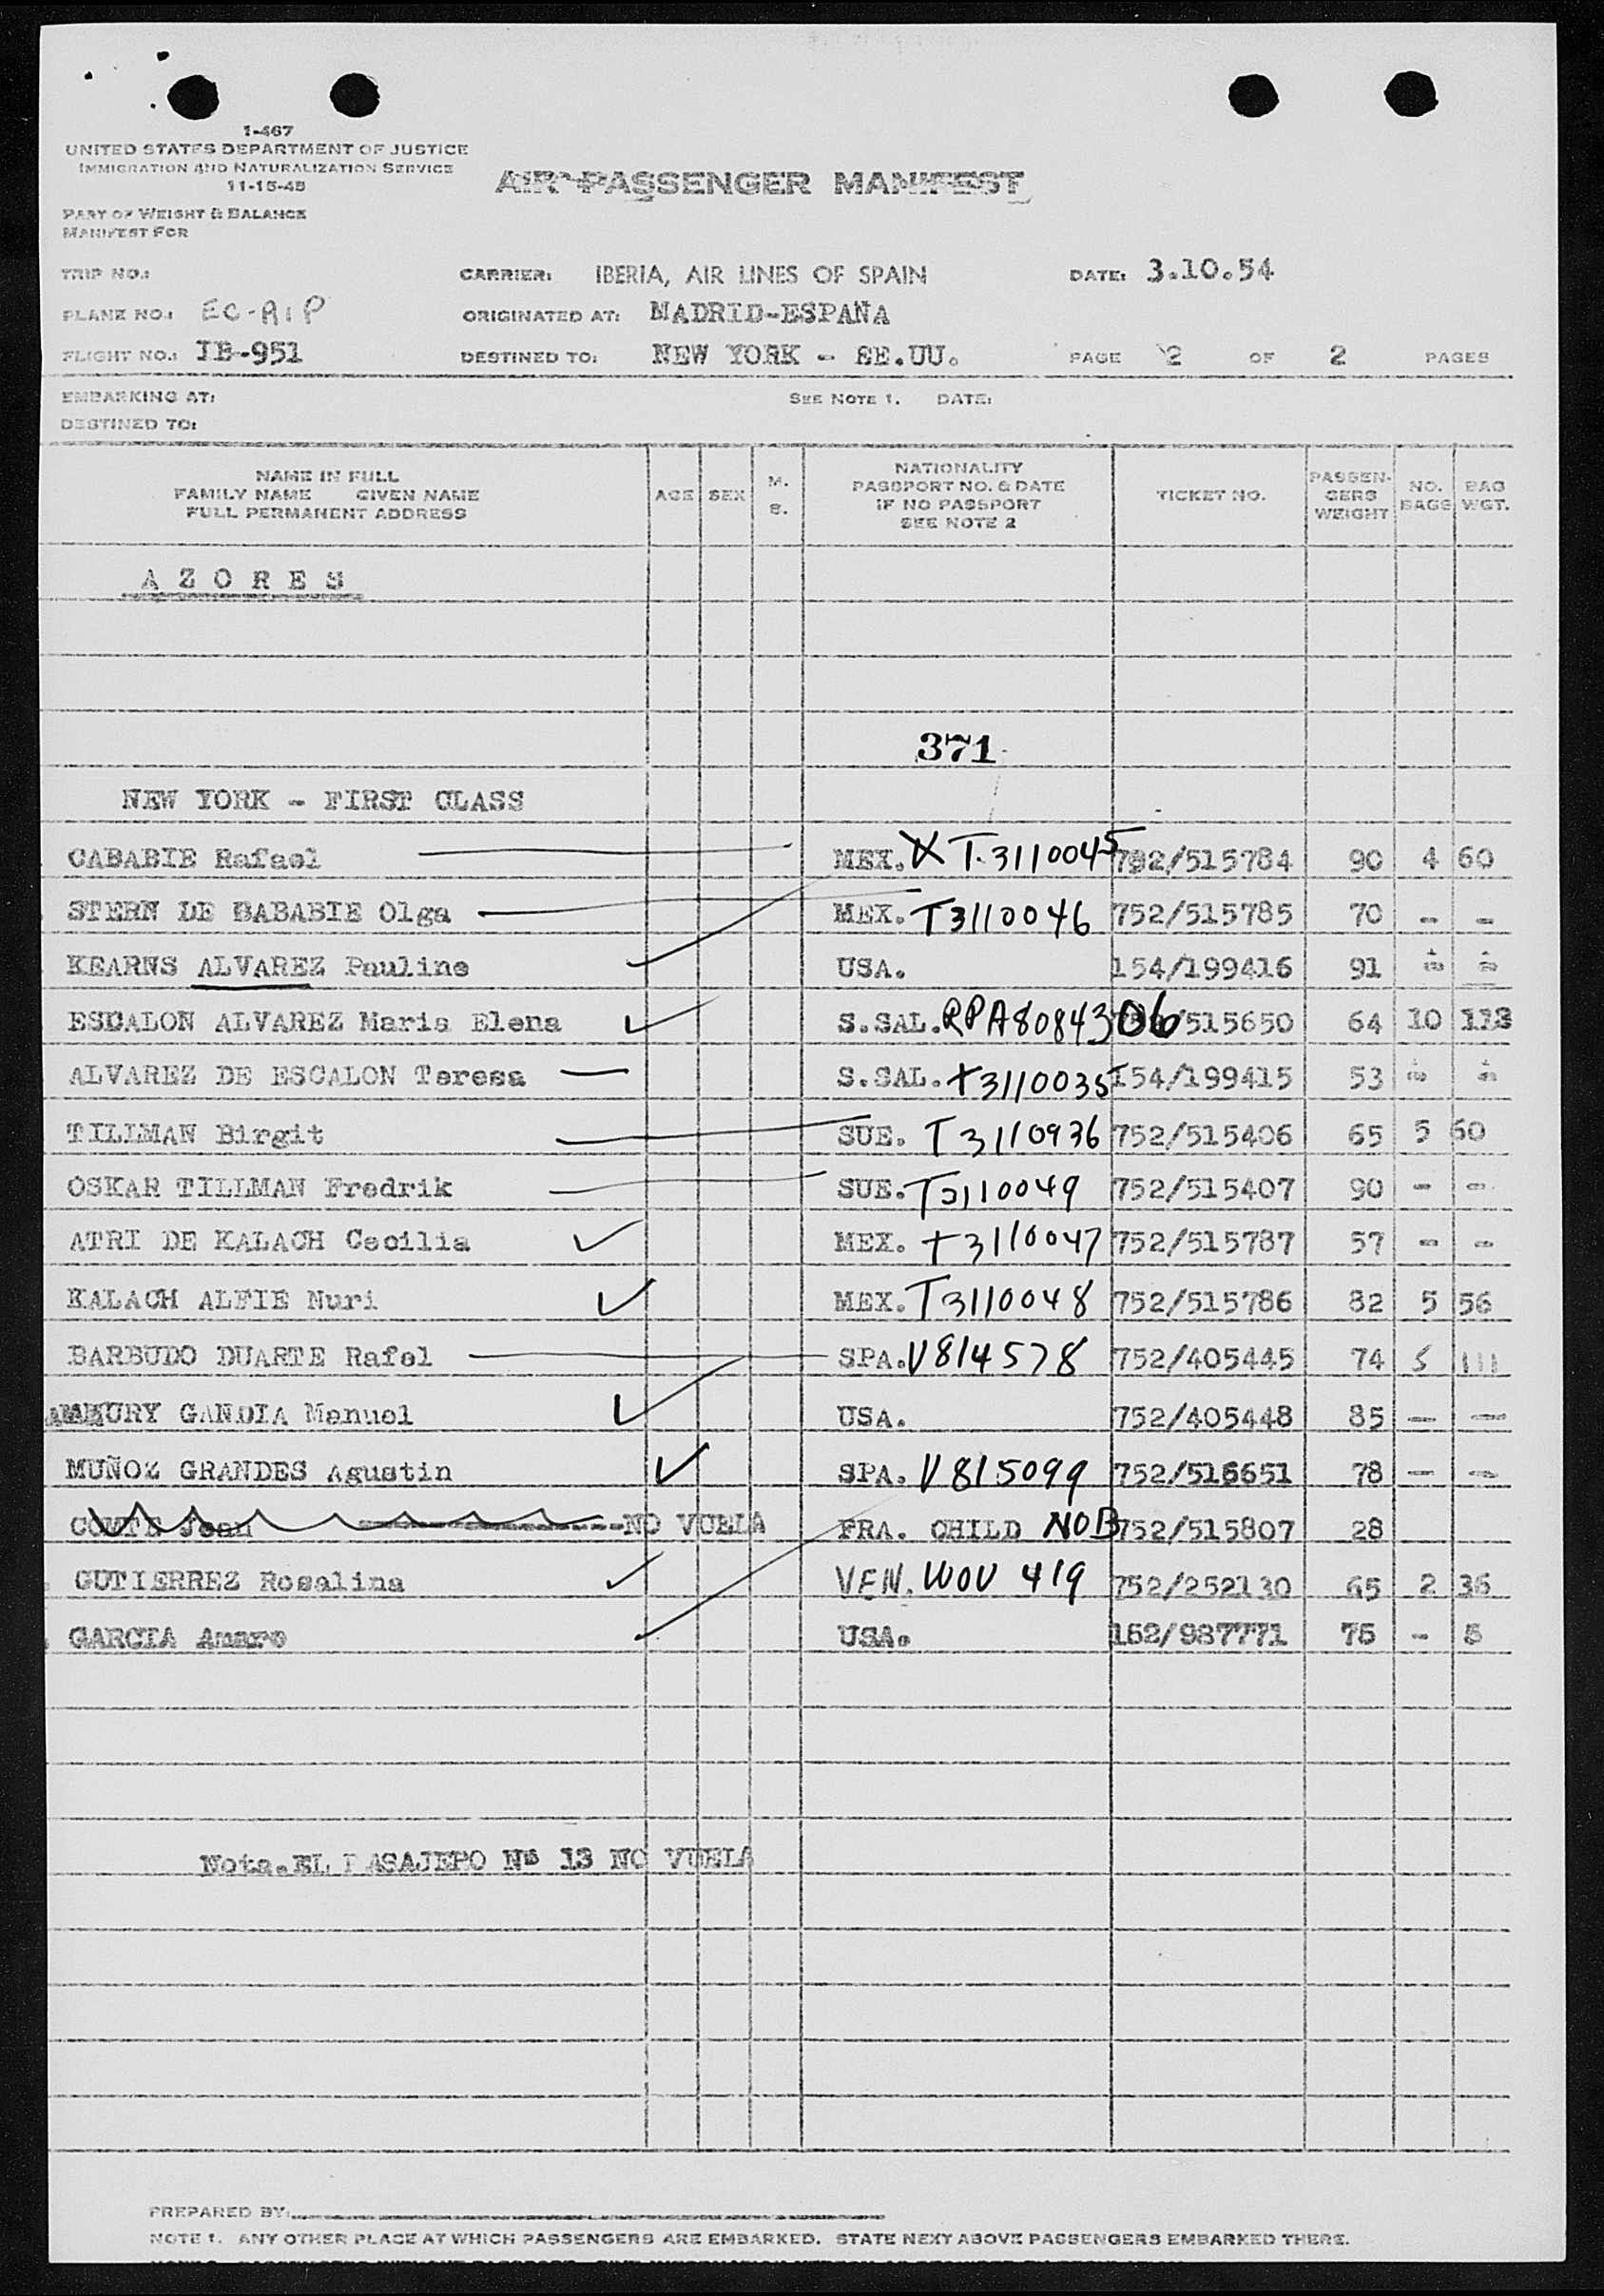 1-467
UNITED STATES DEPARTMENT OF JUSTICE
IMMIGRATION AND NATURALIZATION SERVICE
11-15-48
AIR PASSENGER MANIFEST
PART OF WEIGHT & BALANCE
MANIFEST FOR
TRIP NO.: CARRIER: IBERIA, AIR LINES OF SPAIN DATE: 3.10.54
PLANE NO.: EC-AIP ORIGINATED AT: MADRID-ESPAÑA
FLIGHT NO.: IB-951 DESTINED TO: NEW YORK - EE.UU. PAGE 2 OF 2 PAGES
EMBARKING AT: SEE NOTE 1. DATE:
DESTINED TO:
NAME IN FULL
FAMILY NAME GIVEN NAME
FULL PERMANENT ADDRESS
AGE SEX M. S.
NATIONALITY
PASSPORT NO. & DATE
IF NO PASSPORT
SEE NOTE 2
TICKET NO.
PASSENGERS WEIGHT
NO. BAGS
BAG WGT.
AZORES
371
NEW YORK - FIRST CLASS
CABABIE Rafael MEX. T.3110045 752/515784 90 4 60
STERN DE BABABIE Olga MEX. T3110046 752/515785 70 - -
KEARNS ALVAREZ Pauline USA. 154/199416 91
ESCALON ALVAREZ Maria Elena S.SAL. RPA8084306 /515650 64 10 113
ALVAREZ DE ESCALON Teresa S.SAL. T3110035 154/199415 53
TILLMAN Birgit SUE. T3110936 752/515406 65 5 60
OSKAR TILLMAN Fredrik SUE. T3110049 752/515407 90 - -
ATRI DE KALACH Cecilia MEX. T3110047 752/515787 57 - -
KALACH ALFIE Nuri MEX. T3110048 752/515786 82 5 56
BARBUDO DUARTE Rafel SPA. V814578 752/405445 74 5 111
GANDIA Manuel USA. 752/405448 85 - -
MUÑOZ GRANDES Agustin SPA. V815099 752/516651 78 - -
COMTE Jean NO VUELA FRA. CHILD NOB 752/515807 28
GUTIERREZ Rosalina VEN. WOV 419 752/252130 65 2 36
GARCIA Amaro USA. 152/987771 75 - 5
Nota.EL PASAJERO Nº 13 NO VUELA
PREPARED BY:
NOTE 1. ANY OTHER PLACE AT WHICH PASSENGERS ARE EMBARKED. STATE NEXT ABOVE PASSENGERS EMBARKED THERE.